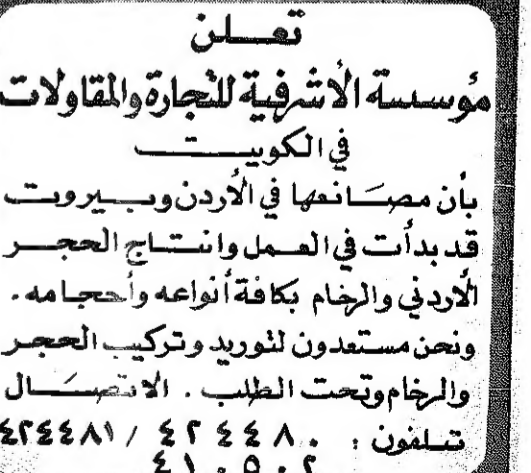 تعلن
مؤسسة الأشرفية للتجارة والمقاولات
في الكويت
بأن مصانعها في الأردن وبيروت
قد بدأت في العمل وانتاج الحجر
الأردني والرخام بكافة أنواعه وأحجامه.
ونحن مستعدون لتوريد وتركيب الحجر
والرخام وتحت الطلب. الاتصال
تلفون: ٤٢٤٤٨٠ / ٤٢٤٤٨١
٤١٠٥٠٢